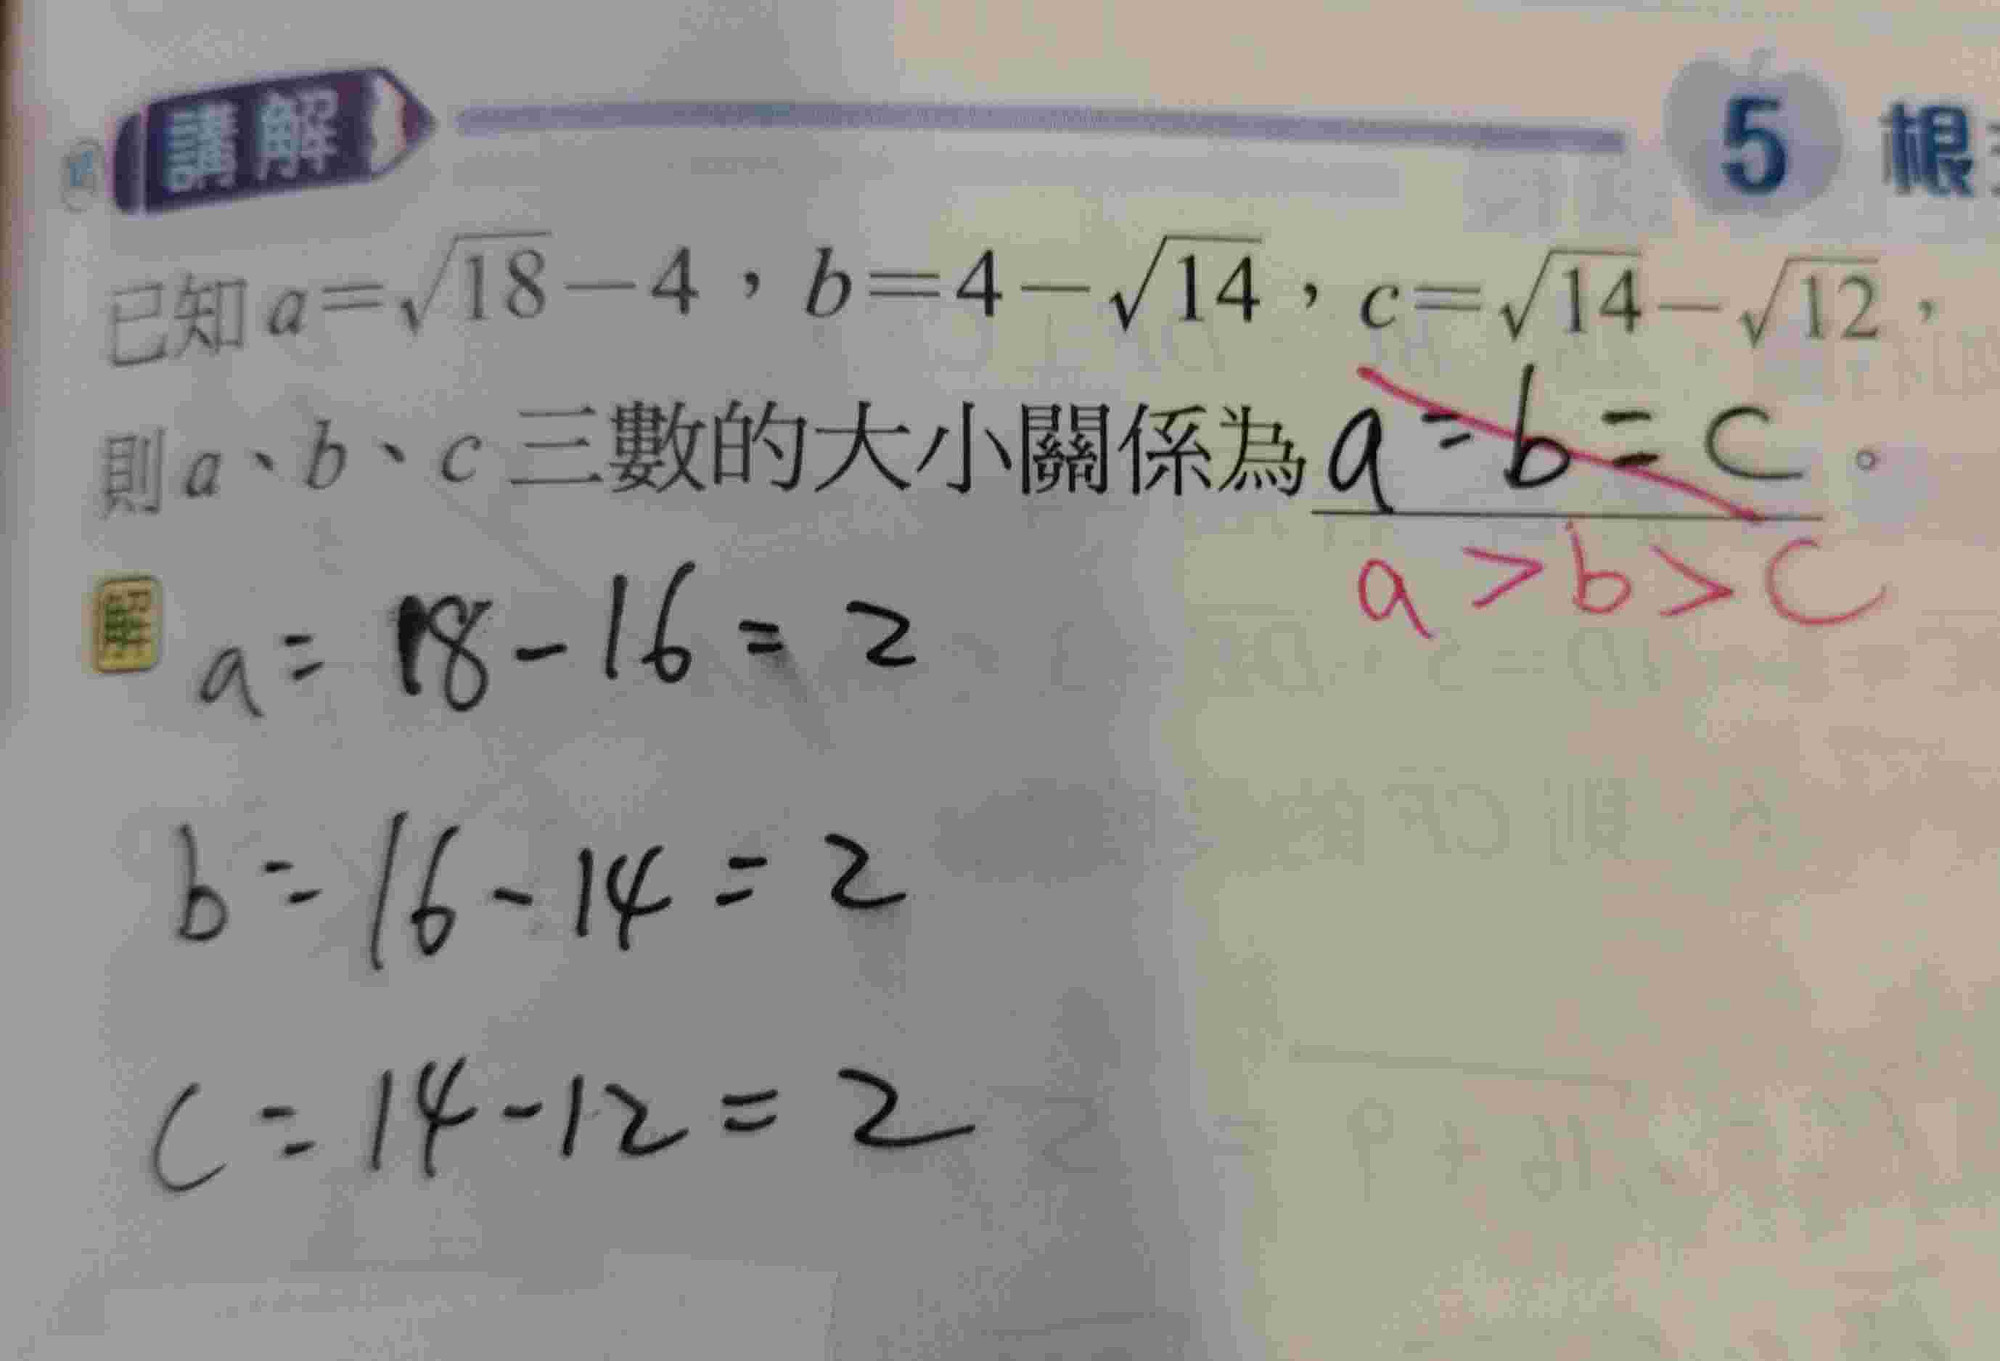 講解
5 根
已知 a=√18−4，b=4−√14，c=√14−√12，
則 a、b、c 三數的大小關係為 a=b=c。
a>b>c
解 a=18-16=2
b=16-14=2
c=14-12=2